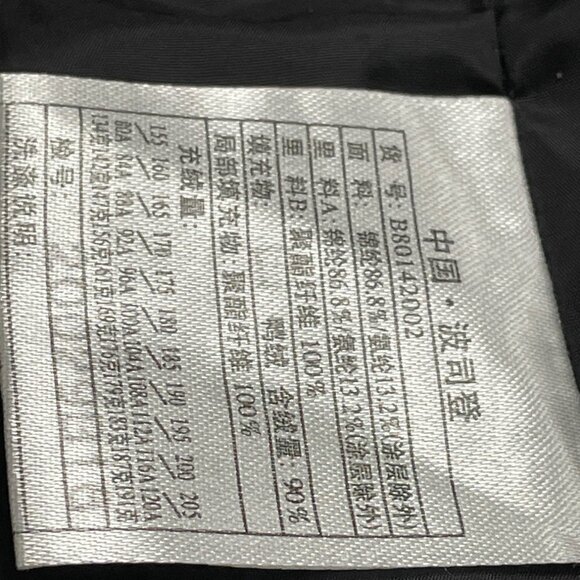 中国·波司登
货 号: B80142002
面 料: 锦纶86.8%/氨纶13.2%(涂层除外)
里 料A 锦纶86.8%/氨纶13.2%(涂层除外)
里 料B 聚酯纤维 100%
填充物: 鸭绒 含绒量: 90%
局部填充物 聚酯纤维 100%
充绒量:
155 160 165 170 175 180 185 190 195 200 205
80A 84A 88A 92A 96A 100A 104A 108A 112A 116A 120A
134克 142克 147克 156克 161克 169克 176克 179克 183克 187克 191克
检 号:
洗涤说明: